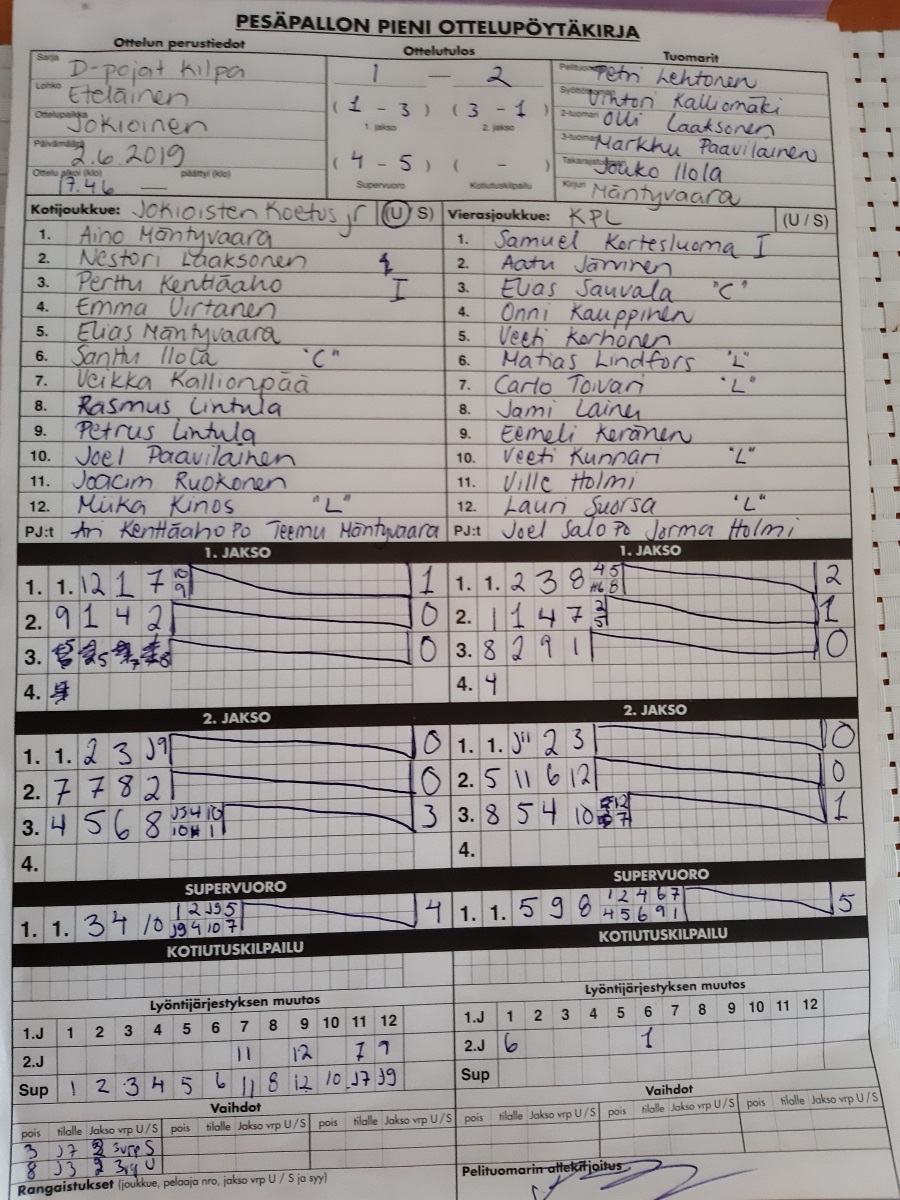 PESÄPALLON PIENI OTTELUPÖYTÄKIRJA
Ottelun perustiedot Ottelutulos Tuomarit
Sarja D-pojat Kilpa 1 — 2 Pelituomari Petri Lehtonen
Lohko Eteläinen (1 - 3) (3 - 1) Syöttötuomari Kalliomäki
Ottelupaikka Jokioinen 1. jakso 2. jakso 2-tuomari Olli Laaksonen
Päivämäärä 2.6.2019 (4 - 5) ( - ) 3-tuomari Markku Paavilainen
Ottelu alkoi (klo) 17.46 — päättyi (klo) Supervuoro Kotiutuskilpailu Takarajatuomari Jouko Ilola
Kirjuri Mäntyvaara
Kotijoukkue: Jokioisten Koetus jr (U/S) Vierasjoukkue: KPL (U / S)
1. Aino Mäntyvaara 1. Samuel Kortesluoma I
2. Nestori Laaksonen 2. Aatu Järvinen
3. Perttu Kenttäaho I 3. Elias Sauvala "C"
4. Emma Virtanen 4. Onni Kauppinen
5. Elias Mäntyvaara 5. Veeti Korhonen
6. Santtu Ilola "C" 6. Matias Lindfors "L"
7. Veikka Kallionpää 7. Carlo Toivari "L"
8. Rasmus Lintula 8. Jami Laine
9. Petrus Lintula 9. Eemeli Keränen
10. Joel Paavilainen 10. Veeti Kunnari "L"
11. Joacim Ruokonen 11. Ville Holmi
12. Miika Kinos "L" 12. Lauri Suorsa "L"
PJ:t Ari Kenttäaho PO Teemu Mäntyvaara PJ:t Joel Salo PO Jorma Holmi
1. JAKSO 1. JAKSO
1. 1. 12 1 7 10 9 1 1. 1. 2 3 8 4 5 6 8 2
2. 9 1 4 2 0 2. 11 4 7 3 5 1
3. 0 3. 8 2 9 1 0
4. 4. 4
2. JAKSO 2. JAKSO
1. 1. 2 3 J9 0 1. 1. J11 2 3 0
2. 7 7 8 2 0 2. 5 11 6 12 0
3. 4 5 6 8 J5 4 10 10 11 1 3 3. 8 5 4 10 12 7 1
4. 4.
SUPERVUORO SUPERVUORO
1. 1. 3 4 10 1 2 J9 5 J9 4 10 7 4 1. 1. 5 9 8 1 2 4 6 7 4 5 6 9 1 5
KOTIUTUSKILPAILU KOTIUTUSKILPAILU
Lyöntijärjestyksen muutos Lyöntijärjestyksen muutos
1.J 1 2 3 4 5 6 7 8 9 10 11 12 1.J 1 2 3 4 5 6 7 8 9 10 11 12
2.J 11 12 7 9 2.J 6 1
Sup 1 2 3 4 5 6 11 8 12 10 J7 J9 Sup
Vaihdot Vaihdot
pois tilalle Jakso vrp U / S pois tilalle Jakso vrp U / S pois tilalle Jakso vrp U / S pois tilalle Jakso vrp U / S pois tilalle Jakso vrp U / S pois tilalle Jakso vrp U / S
3 J7 S
8 J3 2 U
Rangaistukset (joukkue, pelaaja nro, jakso vrp U / S ja syy) Pelituomarin allekirjoitus